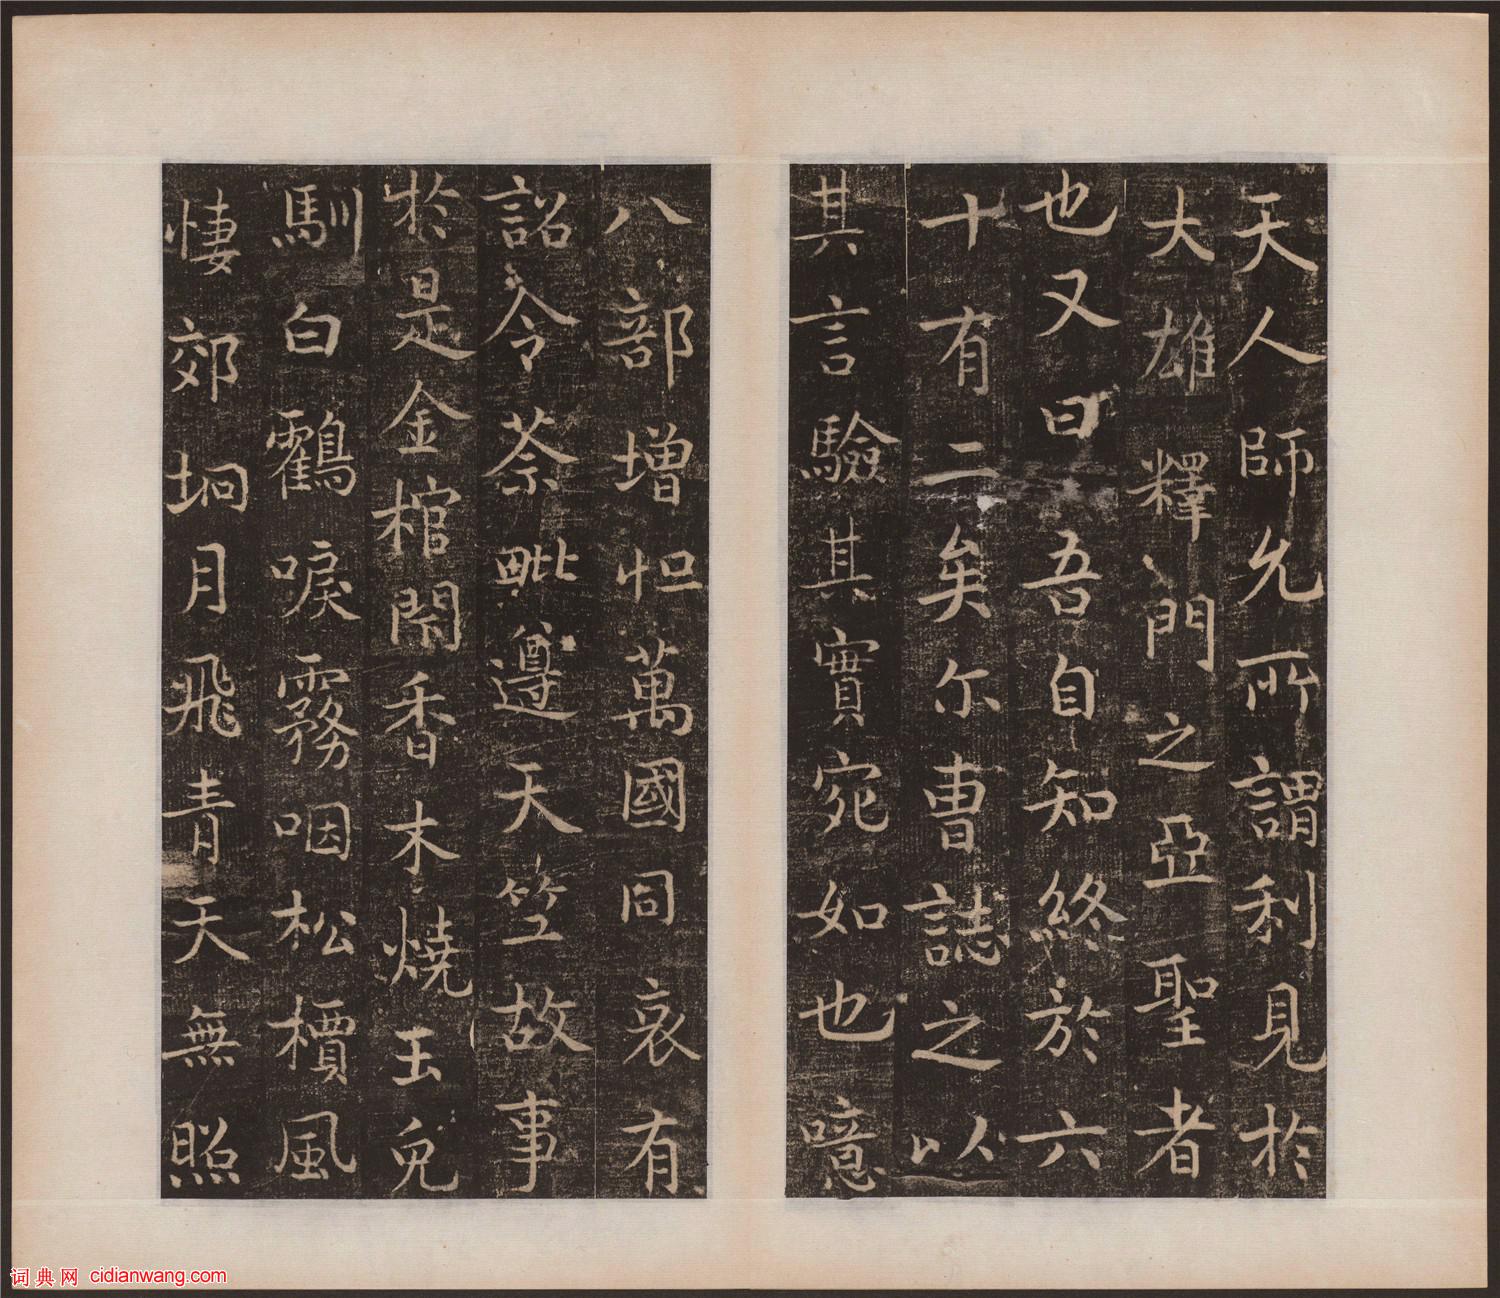 天人師允所謂利見於
大雄釋門之亞聖者
也又曰吾自知終於六
十有二矣尔曹誌之以
其言驗其實宛如也噫
八部增怛萬國同哀有
詔令荼毗遵天竺故事
於是金棺閇香木燒玉皃
馴白鸖唳霧咽松檟風
悽郊坰月飛青天無照
词典网 cidianwang.com